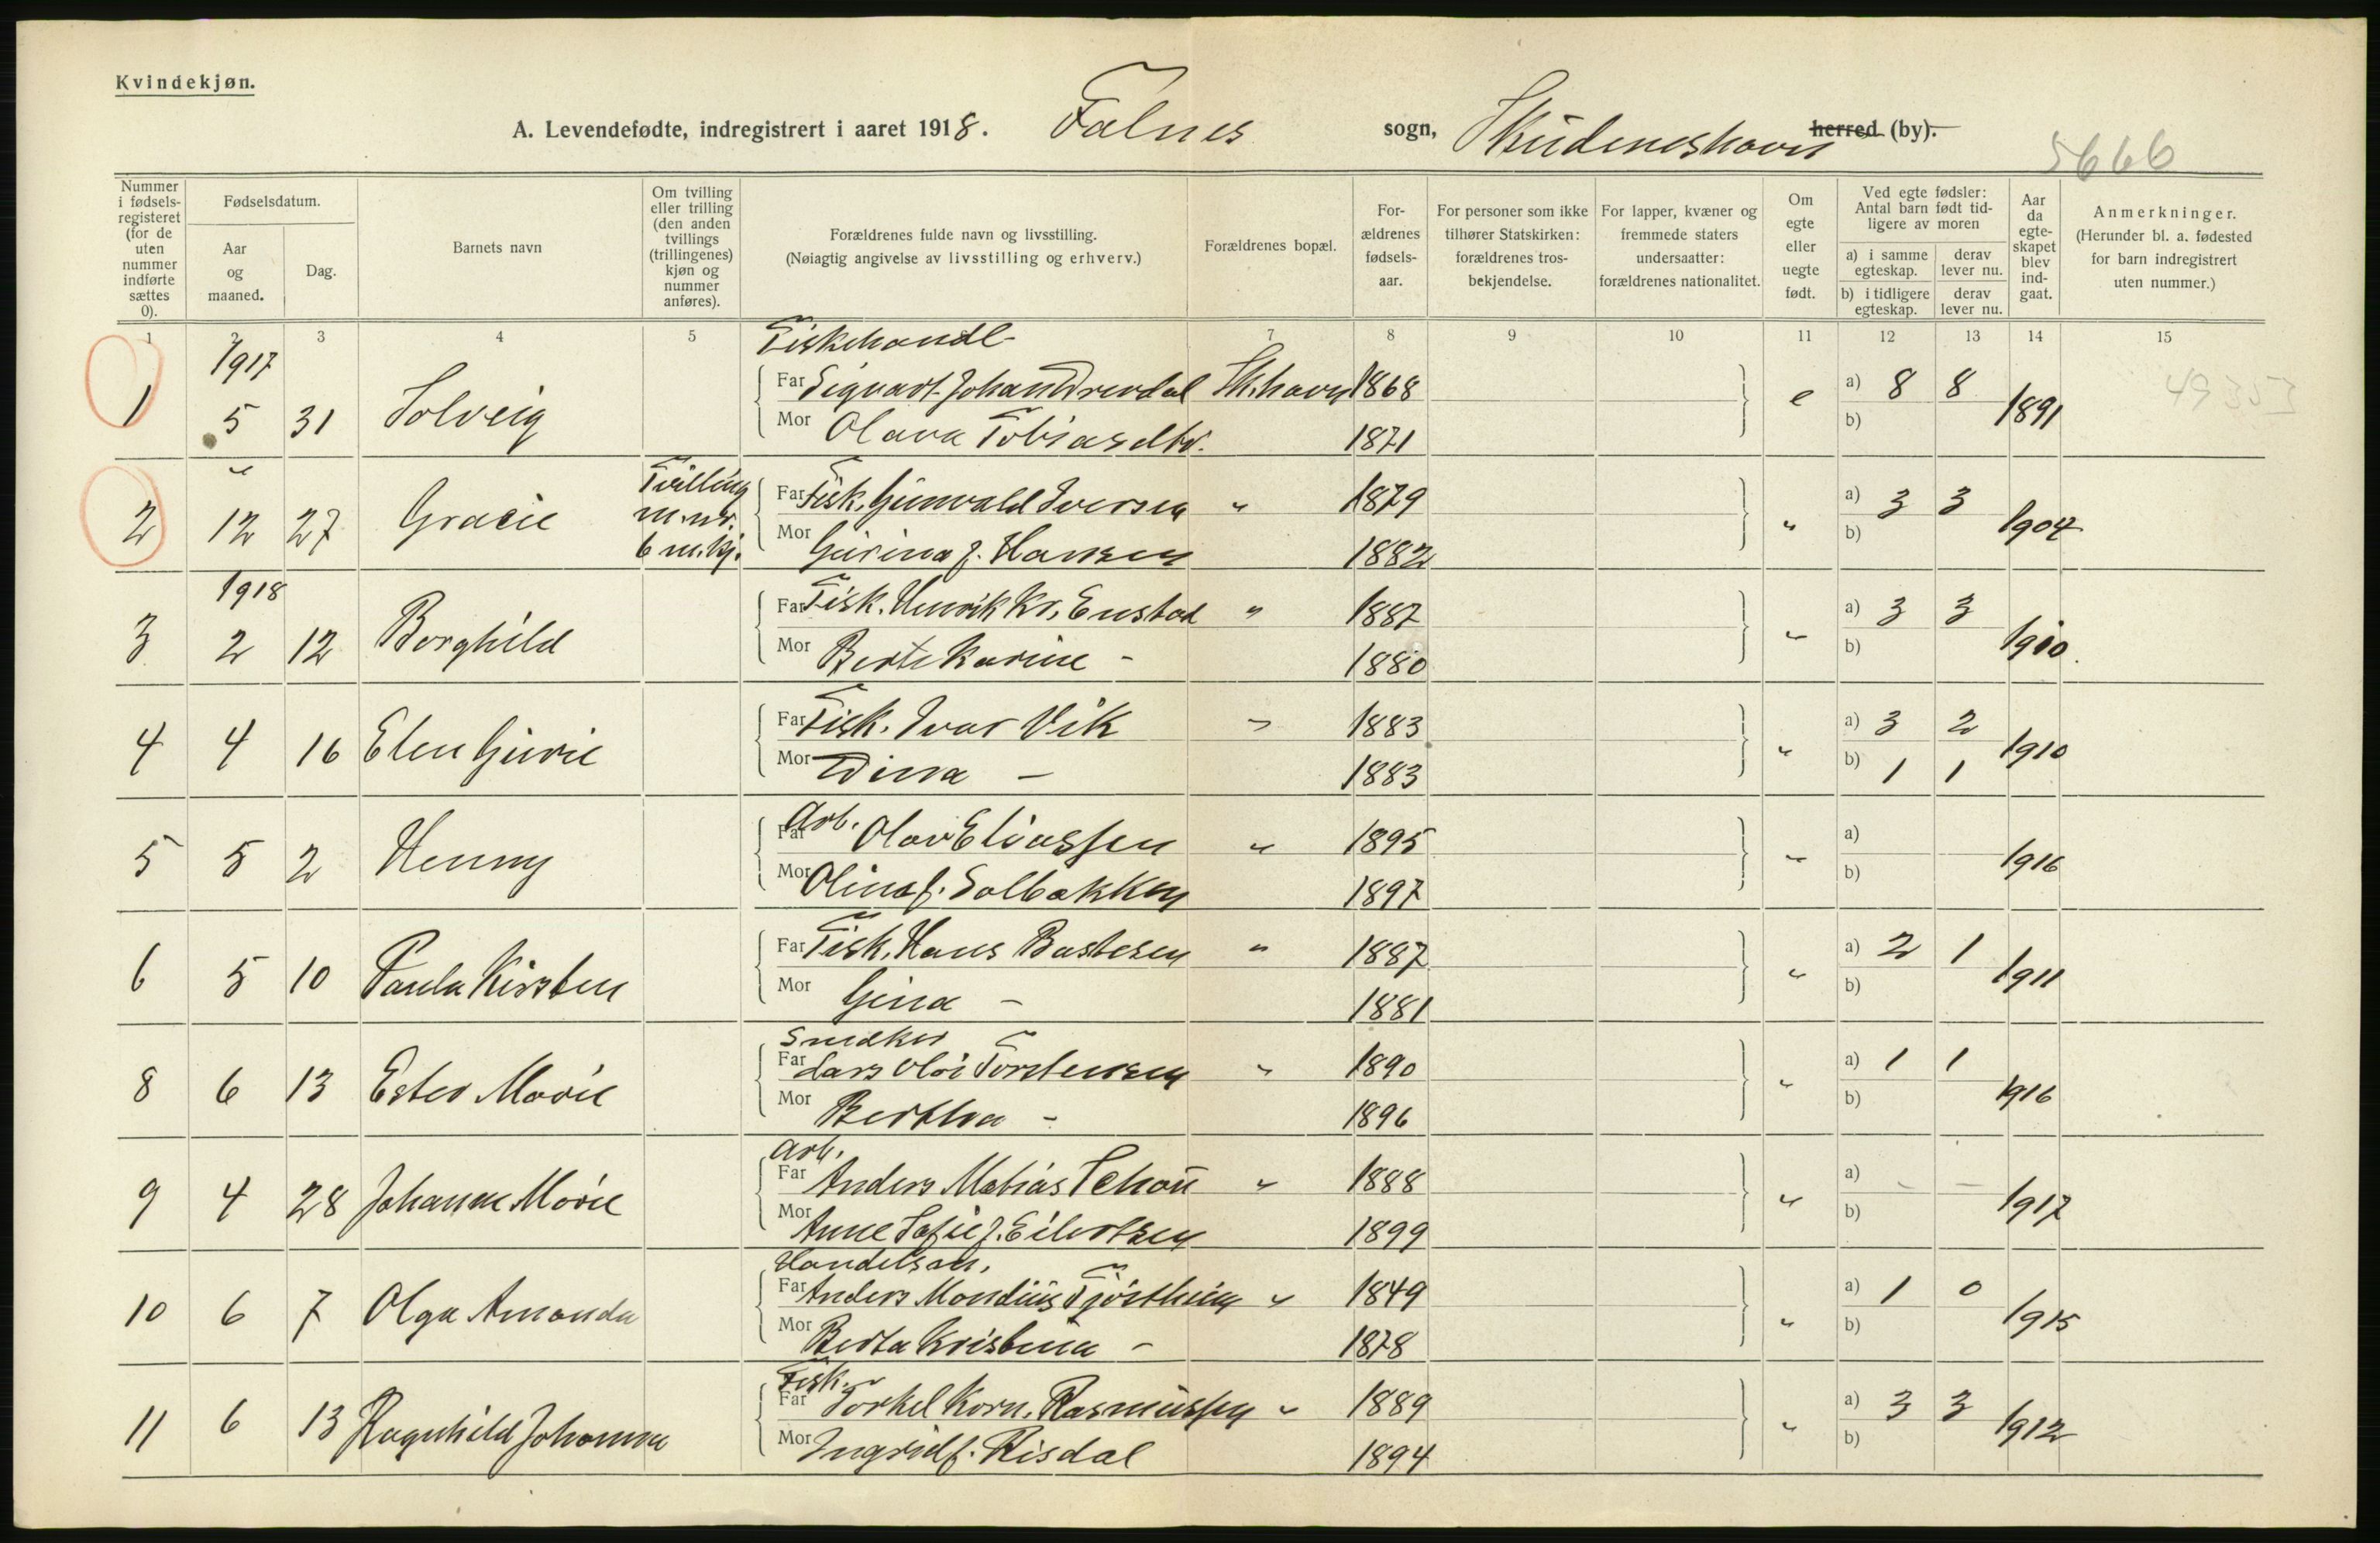 Kvindekjøn.
A. Levendefødte, indregistrert i aaret 1918. Falnes sogn, Skudeneshavn herred (by).
5666
Nummer i fødselsregisteret (for de uten nummer indførte sættes 0).
Fødselsdatum.
Aar og maaned.
Dag.
Barnets navn
Om tvilling eller trilling (den anden tvillings (trillingenes) kjøn og nummer anføres).
Forældrenes fulde navn og livsstilling.
(Nøiagtig angivelse av livsstilling og erhverv.)
Forældrenes bopæl.
Forældrenes fødselsaar.
For personer som ikke tilhører Statskirken: forældrenes trosbekjendelse.
For lapper, kvæner og fremmede staters undersaatter: forældrenes nationalitet.
Om egte eller uegte født.
Ved egte fødsler: Antal barn født tidligere av moren
a) i samme egteskap.
derav lever nu.
b) i tidligere egteskap.
derav lever nu.
Aar da egteskapet blev indgaat.
Anmerkninger.
(Herunder bl. a. fødested for barn indregistrert uten nummer.)
1 2 3 4 5 7 8 9 10 11 12 13 14 15
1917 Fiskehandl
Far Sigvart Johan Drevdal Sk.havn 1868 a) 8 8 49353
1 5 31 Solveig e 1891
Mor Olava Tobiasdtr. 1871 b)
" Tvilling
Far Fisk. Gunvald Iversen " 1879 a) 3 3
2 12 27 Gracie m. nr. " 1904
6 m.kj. Mor Gurina f. Hansen 1882 b)
1918
Far Fisk. Henrik Kr. Enstad " 1887 a) 3 3
3 2 12 Borghild " 1910
Mor Berte Karine - 1880 b)
Far Fisk. Ivar Vik " 1883 a) 3 2
4 4 16 Elen Gurie " 1910
Mor Dina - 1883 b) 1 1
Arb.
Far Olav Eliassen " 1895 a)
5 5 2 Henny " 1916
Mor Olina f. Solbakken 1897 b)
Far Fisk. Hans Bastesen " 1887 a) 2 1
6 5 10 Paula Kirsten " 1911
Mor Gina - 1881 b)
Snedker
Far Lars Olai Torstensen " 1890 a) 1 1
8 6 13 Ester Marie " 1916
Mor Bertha - 1896 b)
Arb.
Far Anders Matias Schou " 1888 a) - -
9 4 28 Johanne Marie " 1917
Mor Anne Sofie f. Eilertsen 1899 b)
Handelsm.
Far Anders Mandius Tjøstheim " 1849 a) 1 0
10 6 7 Olga Amanda " 1915
Mor Berta Kristina - 1878 b)
Fisk.
Far Torkel Korn. Rasmussen " 1889 a) 3 3
11 6 13 Ragnhild Johanna " 1912
Mor Ingrid f. Risdal 1894 b)